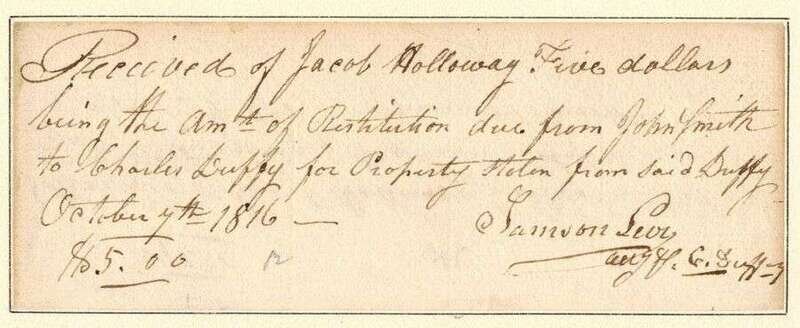 Received of Jacob Holloway Five dollars
being the Amt. of Restitution due from John Smith
to Charles Duffy for Property stolen from said Duffy
October 7th 1816 —
Samson Levy
$5.00
atty f. C. Duffy